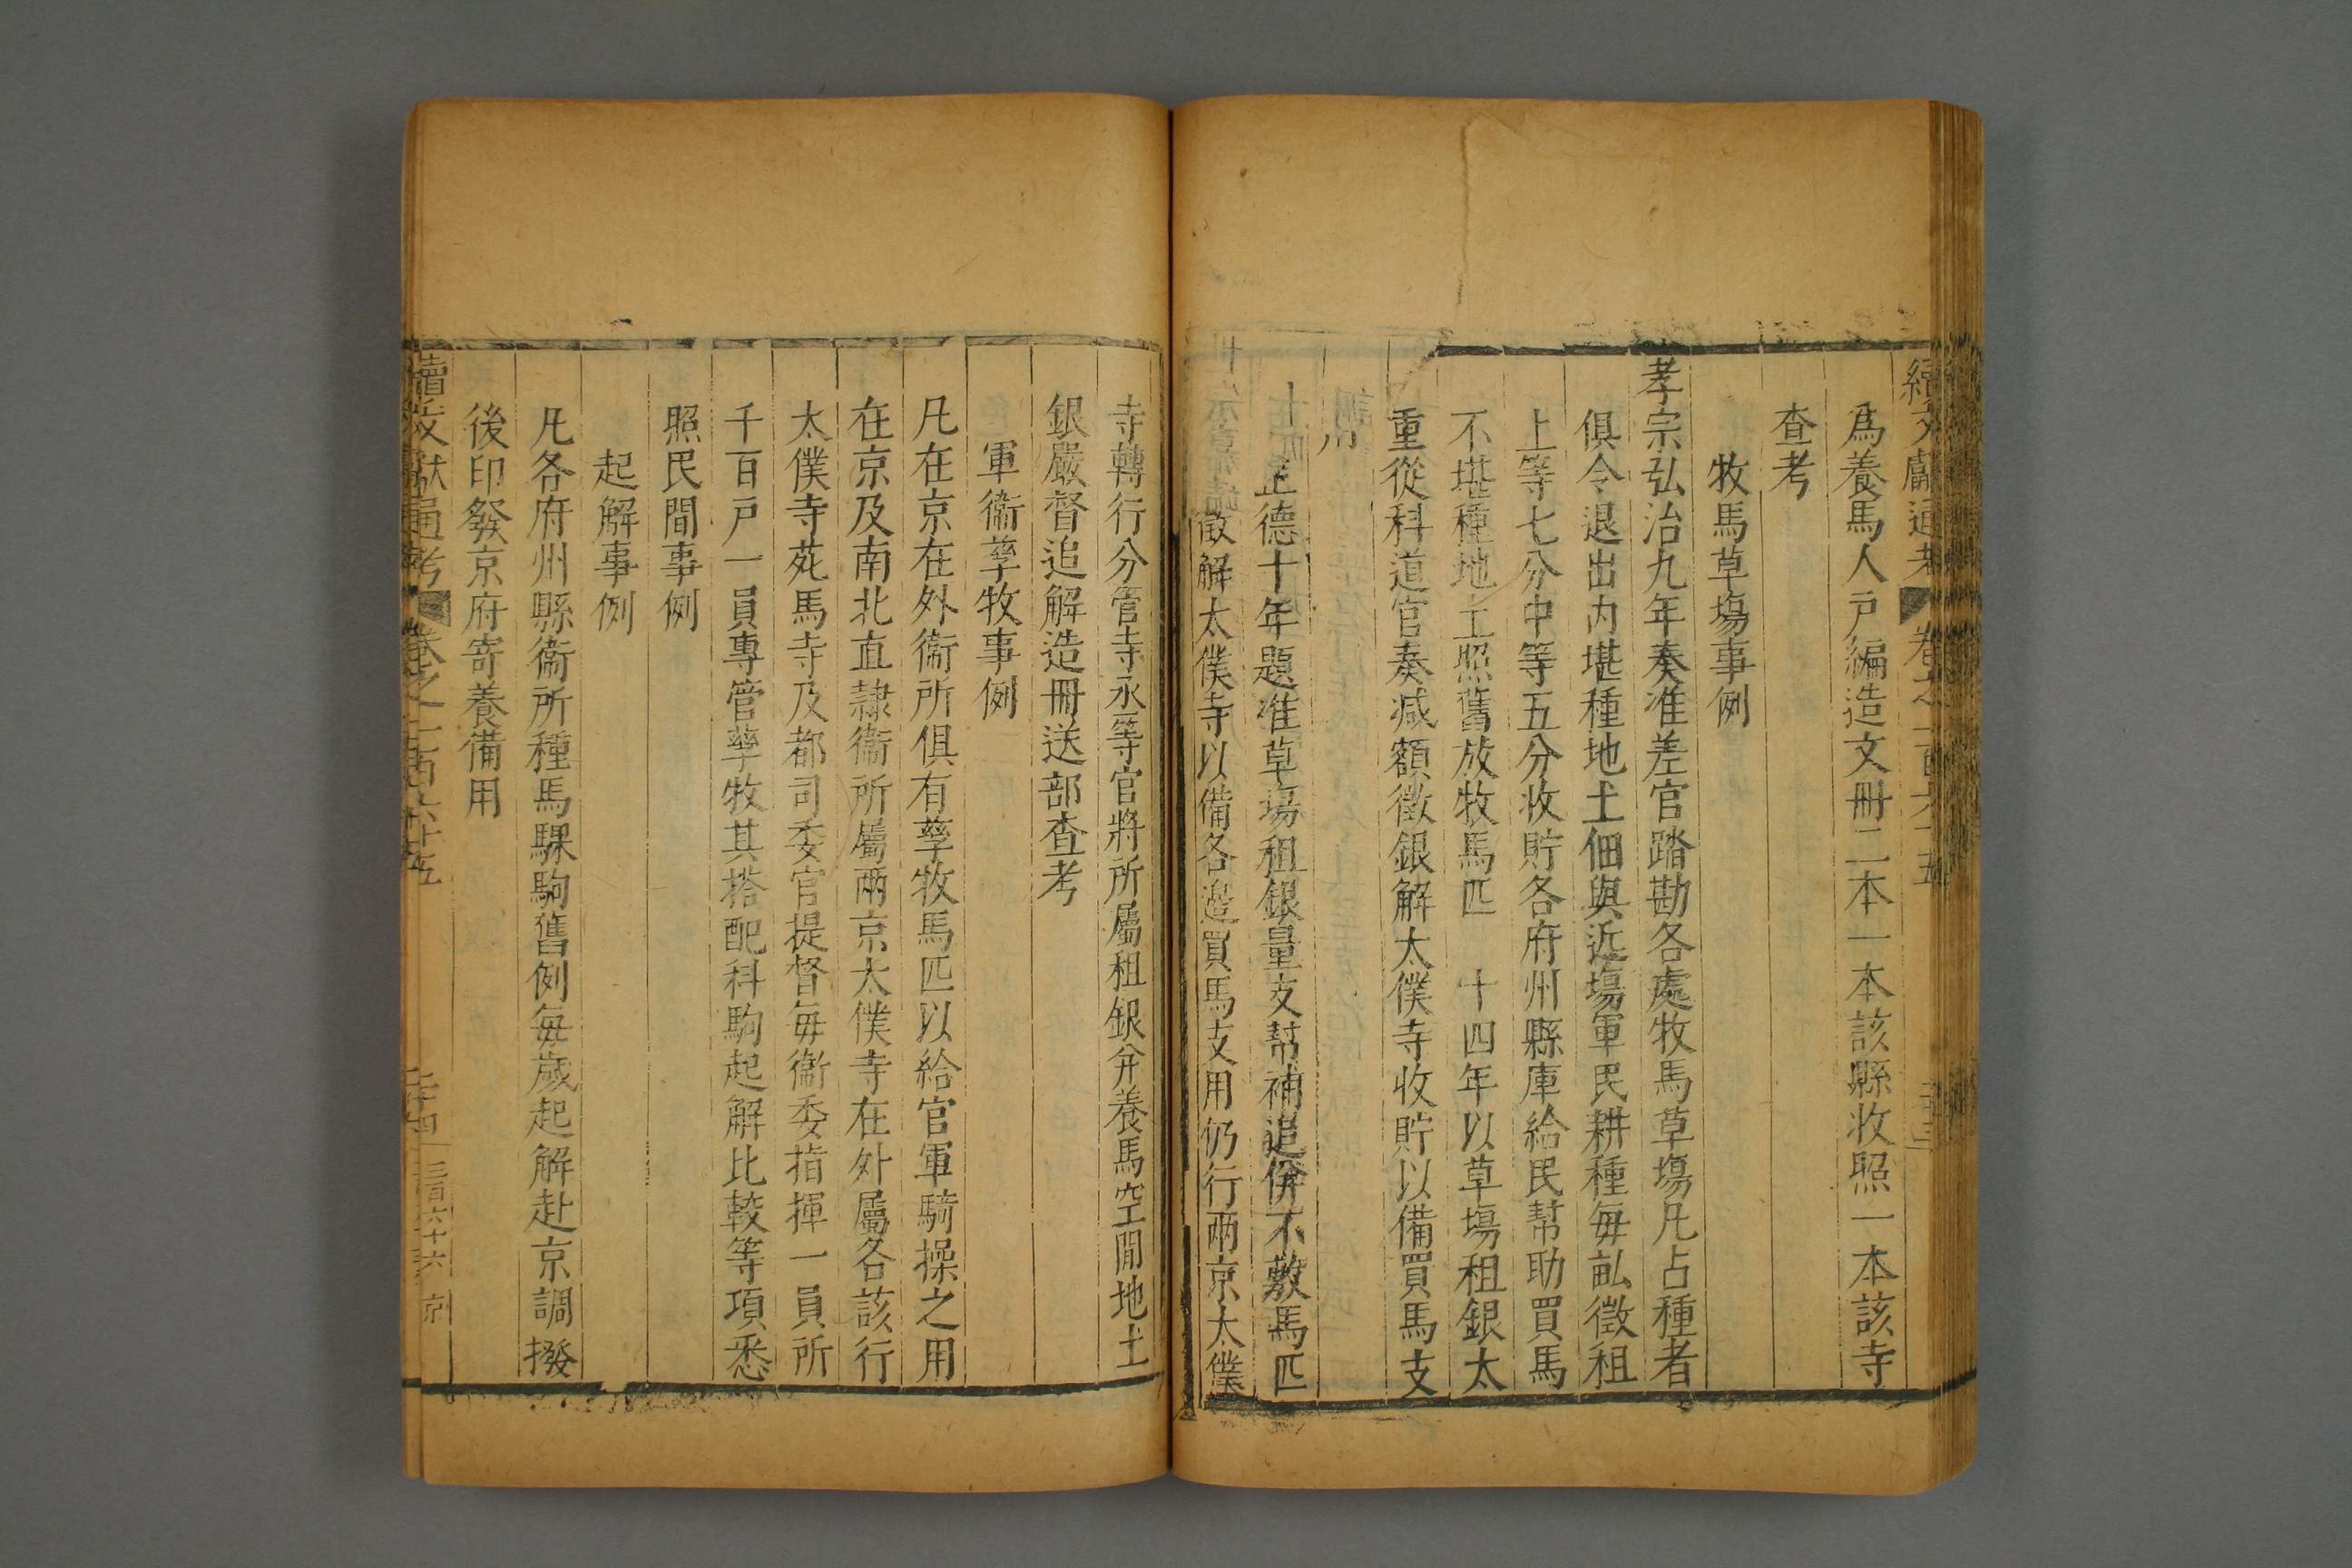 續文獻通考 卷之一百六十五
爲養馬人戶編造文冊二本一本該縣收照一本該寺
查考
牧馬草塲事例
孝宗弘治九年奏准差官踏勘各處牧馬草塲凡占種者
俱令退出內堪種地土佃與近塲軍民耕種每畝徵租
上等七分中等五分收貯各府州縣庫給民幫助買馬
不堪種地土照舊放牧馬匹 十四年以草塲租銀太
重從科道官奏减額徵銀解太僕寺收貯以備買馬支
用
正德十年題准草塲租銀量支幫補追併不敷馬匹
徵解太僕寺以備各邊買馬支用仍行兩京太僕
寺轉行分管寺丞等官將所屬租銀并養馬空閒地土
銀嚴督追解造冊送部查考
軍衞孳牧事例
凡在京在外衞所俱有孳牧馬匹以給官軍騎操之用
在京及南北直隷衞所屬兩京太僕寺在外屬各該行
太僕寺苑馬寺及都司委官提督每衞委指揮一員所
千百戶一員專管孳牧其搭配科駒起解比較等項悉
照民間事例
起解事例
凡各府州縣衞所種馬騍駒舊例每歲起解赴京調撥
後印發京府寄養備用
續文獻通考 卷之一百六十五 二十四 三百六十六 京